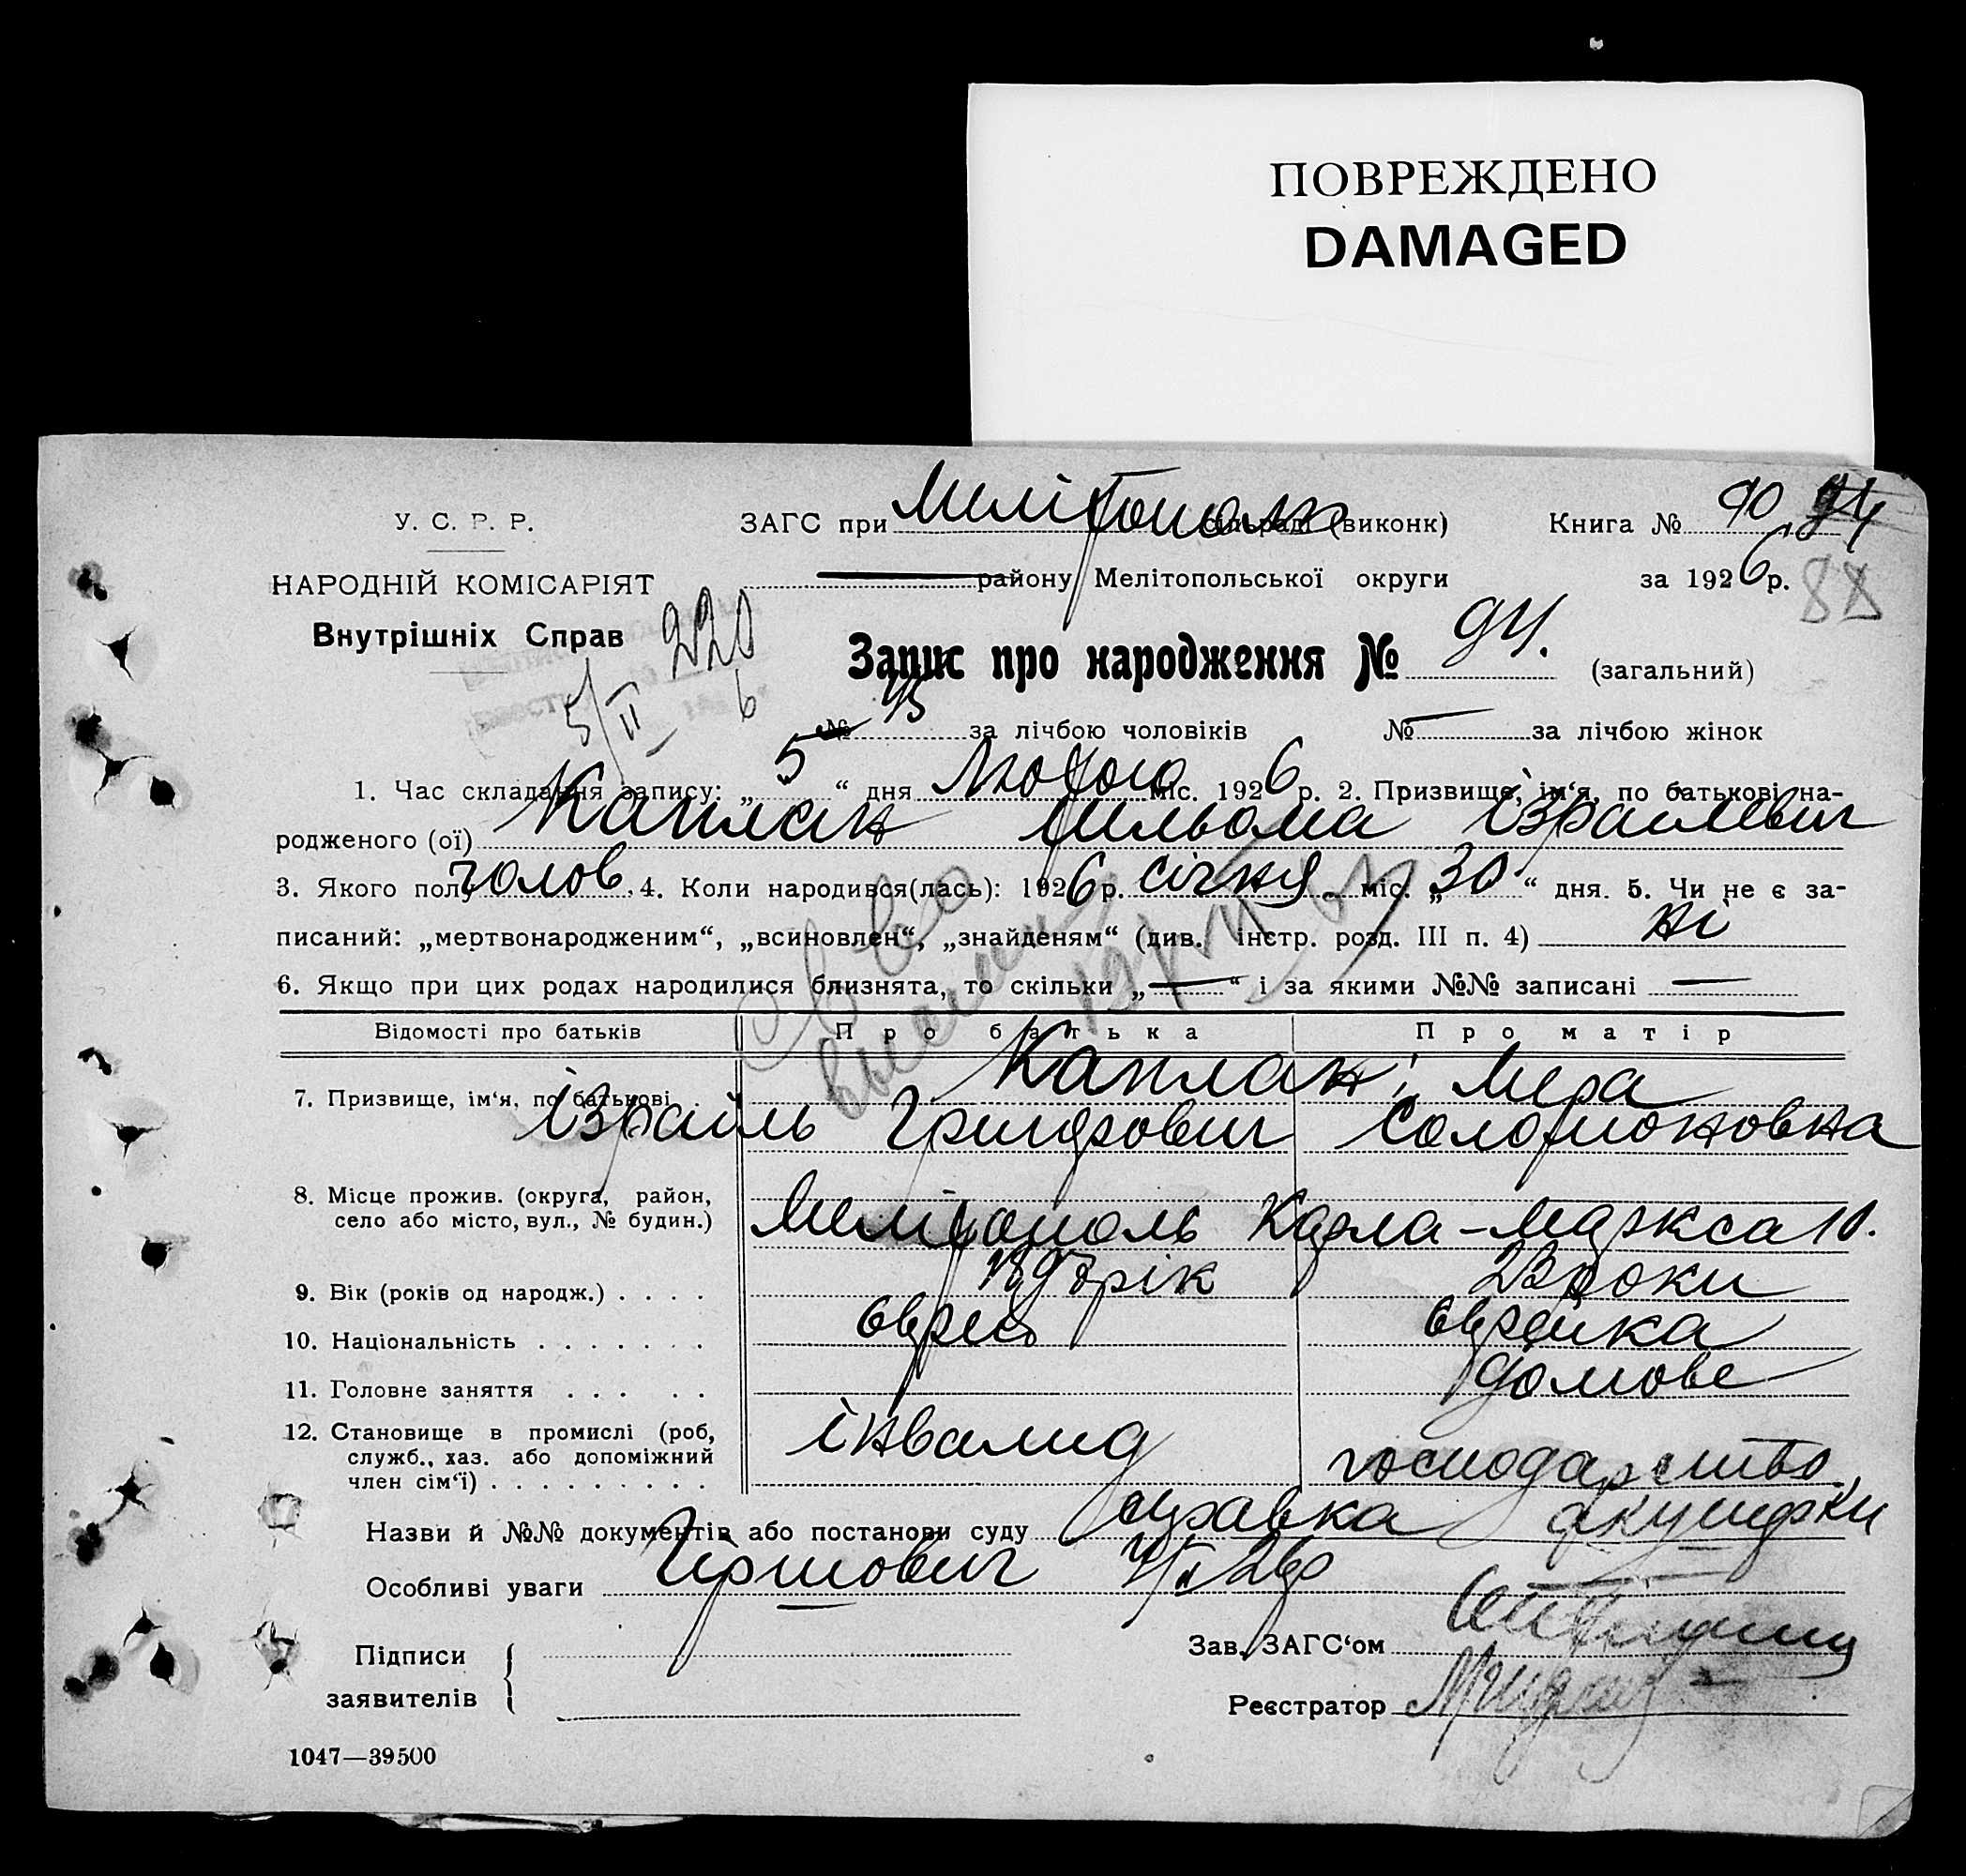 ПОВРЕЖДЕНО
DAMAGED
У. С. Р. Р.
НАРОДНІЙ КОМІСАРІЯТ
Внутрішніх Справ
220
5/II 6
ЗАГС при Мелітополь сільраді (виконк)
Книга № 90
94
району Мелітопольської округи
за 1926 р.
88
Запис про народження № 94. (загальний)
№ 45 за лічбою чоловіків № — за лічбою жінок
1. Час складання запису: „5“ дня Лютого міс. 1926 р. 2. Призвище, ім‘я, по батькові на-
родженого (ої) Каплан Ізраилевич
3. Якого полу чолов. 4. Коли народився(лась): 1926 р. січня міс. „30“ дня. 5. Чи не є за-
писаний: „мертвонародженим“, „всиновлен“, „знайденям“ (див. інстр. розд. III п. 4) ні
6. Якщо при цих родах народилися близнята, то скільки „—“ і за якими №№ записані —
Відомості про батьків Про батька Про матір
7. Призвище, ім‘я, по батькові Каплан, Мера
Ізраиль Григорович Соломоновна
8. Місце прожив. (округа, район,
село або місто, вул., № будин.) Мелітополь Карла-Маркса 10.
9. Вік (років од народж.) . . . . 1897 рік 23 роки
10. Національність . . . . . . . еврей еврейка
11. Головне заняття . . . . . домове
12. Становище в промислі (роб,
служб., хаз. або допоміжний
член сім‘ї) . . . . . . . . . інвалид господарство
Назви й №№ документів або постанови суду справка акушерки
Особливі уваги Гіршович 4/II 26р
Підписи
заявителів
Зав. ЗАГС‘ом
Реєстратор
1047—39500